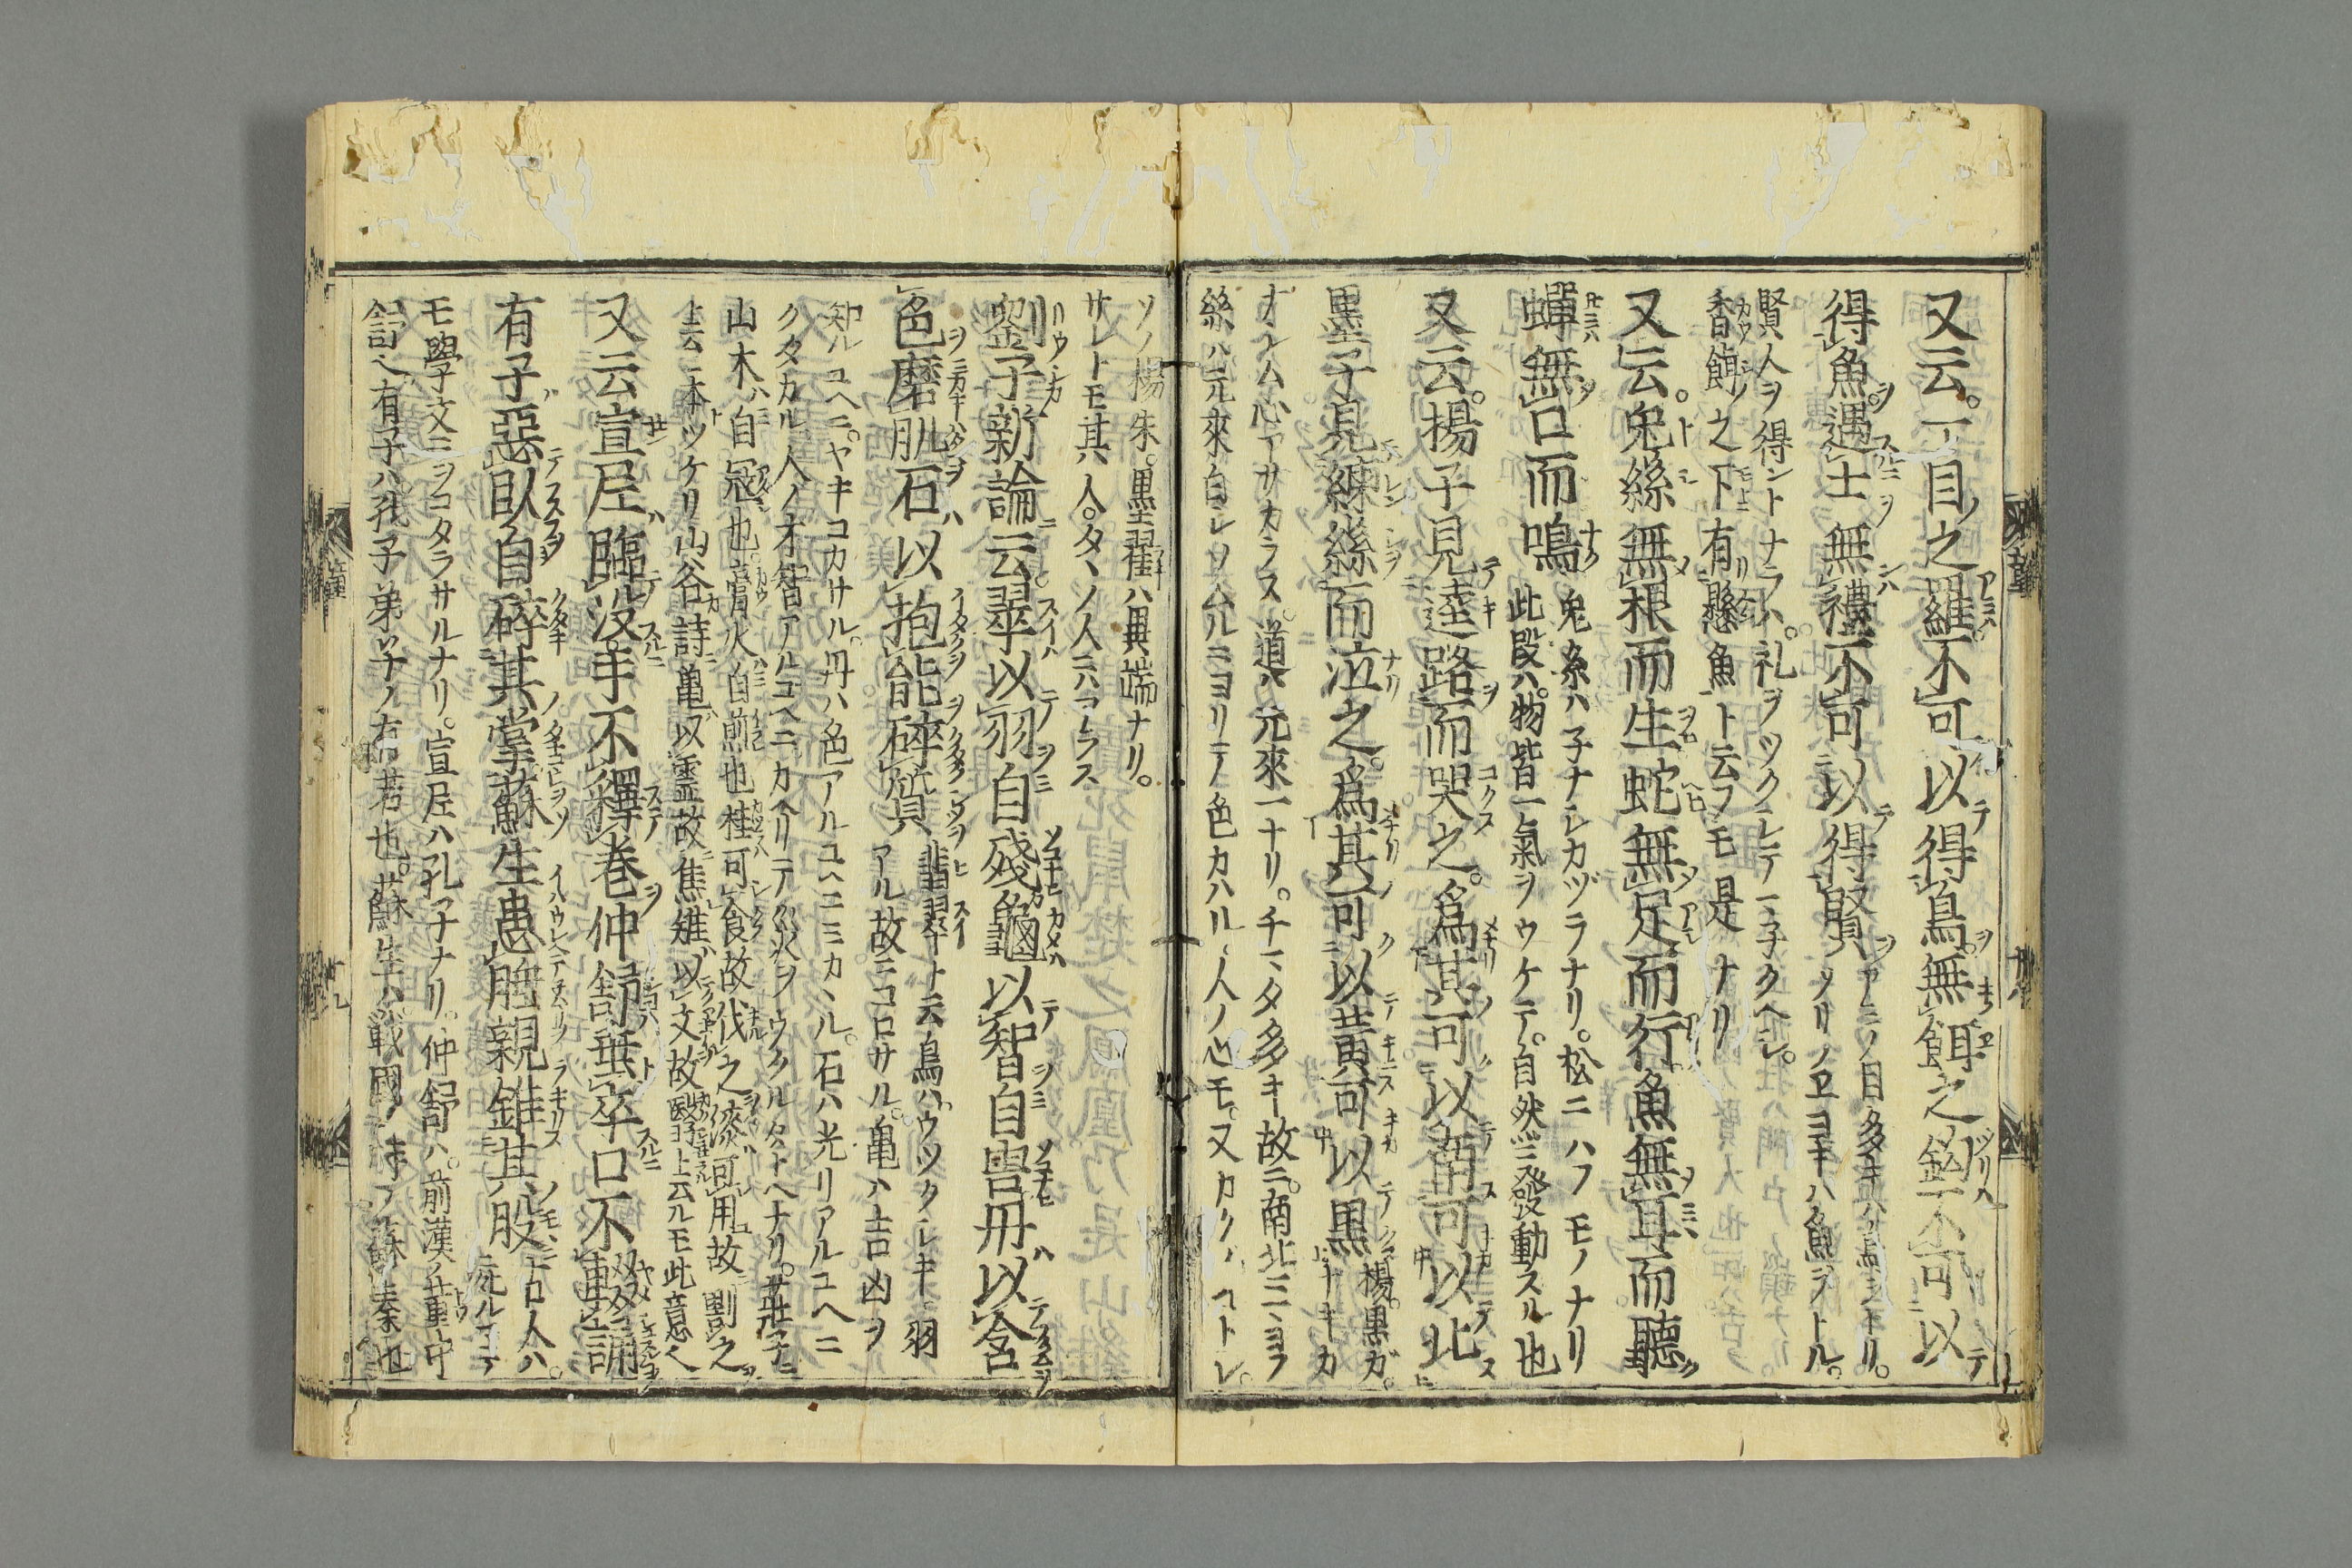 又云。一目之羅不可以得鳥。無餌之釣不可以
得魚。遇士無禮不可以得賢 アミノ目多キハ鳥ヲトル。
ツリノヱヨキハ魚ヲトル。
賢人ヲ得ントナラハ。礼ヲツクシテ一子クヘシ。
香餌之下有懸魚ト云フモ是ナリ
又云。兎絲無根而生蛇無足而行魚無耳而聽
蟬無口而鳴 兎糸ハ子ナシカヅラナリ。松ニハフモノナリ
此段ハ。物皆一氣ヲウケテ。自然ニ發動スル也
又云。揚子見逵路而哭之。爲其可以南可以北
墨子見練絲而泣之。爲其可以黄可以黒 楊。墨ガ。
ナキカ
ナシム心アサカラス。道ハ元來一ナリ。チマタ多キ故ニ。南北ニマヨフ
絲ハ元來白シソムルニヨリテ色カハル、人ノ心モ。又カクノコトシ。
ソノ楊朱。墨翟ハ異端ナリ。
サレトモ其人。タヽノ人ニハアラス
劉子新論云。翠以羽自殘龜以智自害丹以含
色磨肌石以抱能碎質 翡翠ト云鳥ハ。ウツクシキ羽
アル故ニコロサル。亀ハ吉凶ヲ
知ルユヘニ。ヤキコカサル。丹ハ色アルユヘニミカヽル。石ハ光リアルユヘニ
クタカル人ノ才智アルユヘニカヘリテ災ヲウクルタトヘナリ。莊子ニ
山木ハ自冦也。膏火自煎也桂可食故伐之漆可用故割之
上云ニ本ツケリ山谷詩ニ亀以靈故焦雉以文故翳ヨ上云ルモ此意也
又云宣尼臨没手不釋卷仲舒垂卒口不輟誦
有子惡臥自碎其掌蘇生患睡親錐其股 古人ハ。
死ルマテ
モ學文ヲヲコタラサルナリ。宣尼ハ孔子ナリ。仲舒ハ。前漢ノ董仲
舒也有子ハ孔子弟子ノ有若也。蘇生ハ戰國ノ時ノ蘇秦也